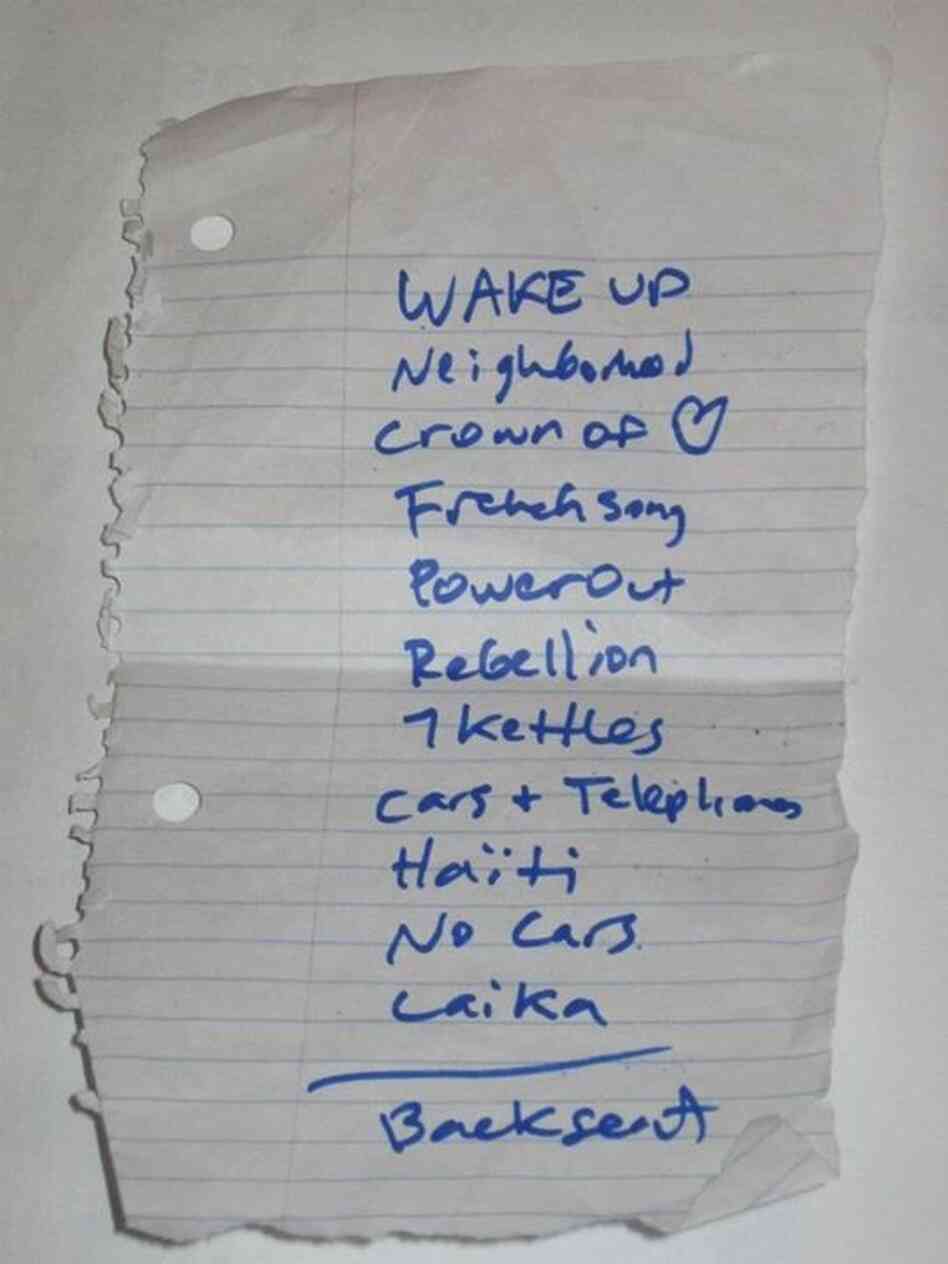 WAKE UP
Neighborhood
Crown of ♡
French song
Power Out
Rebellion
7 Kettles
Cars + Telephones
Haïti
No Cars
Laika
Backseat